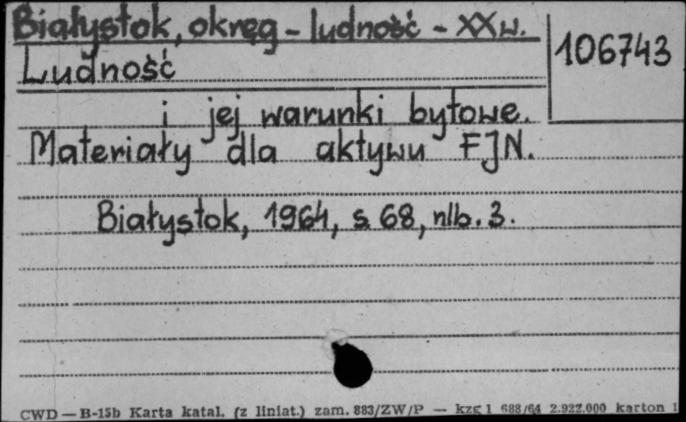 Białystok, okręg - ludność - XX w.
106743
Ludność
i jej warunki bytowe.
Materiały dla aktywu FJN.
Białystok, 1964, s. 68, nlb. 3.
CWD — B-15b Karta katal. (z liniat.) zam. 883/ZW/P — kzg 1 688/64 2.922.000 karton 1